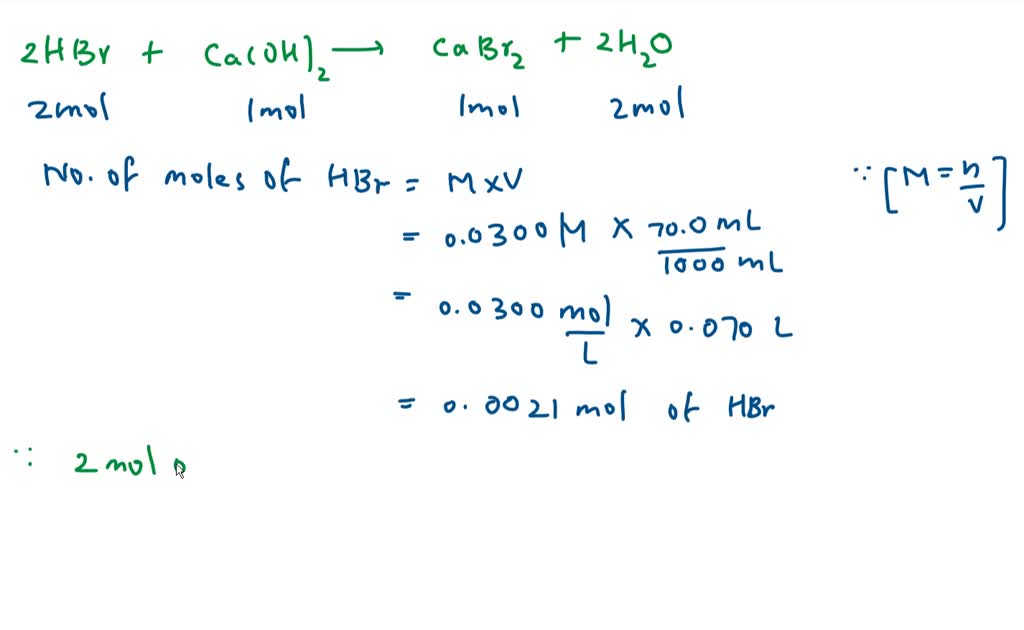 2HBr + Ca(OH)₂ → CaBr₂ + 2H₂O
2mol 1mol 1mol 2mol
No. of moles of HBr = M×V ∵ [M = n/v]
= 0.0300 M × 70.0 mL / 1000 mL
= 0.0300 mol/L × 0.070 L
= 0.0021 mol of HBr
∵ 2 mol o